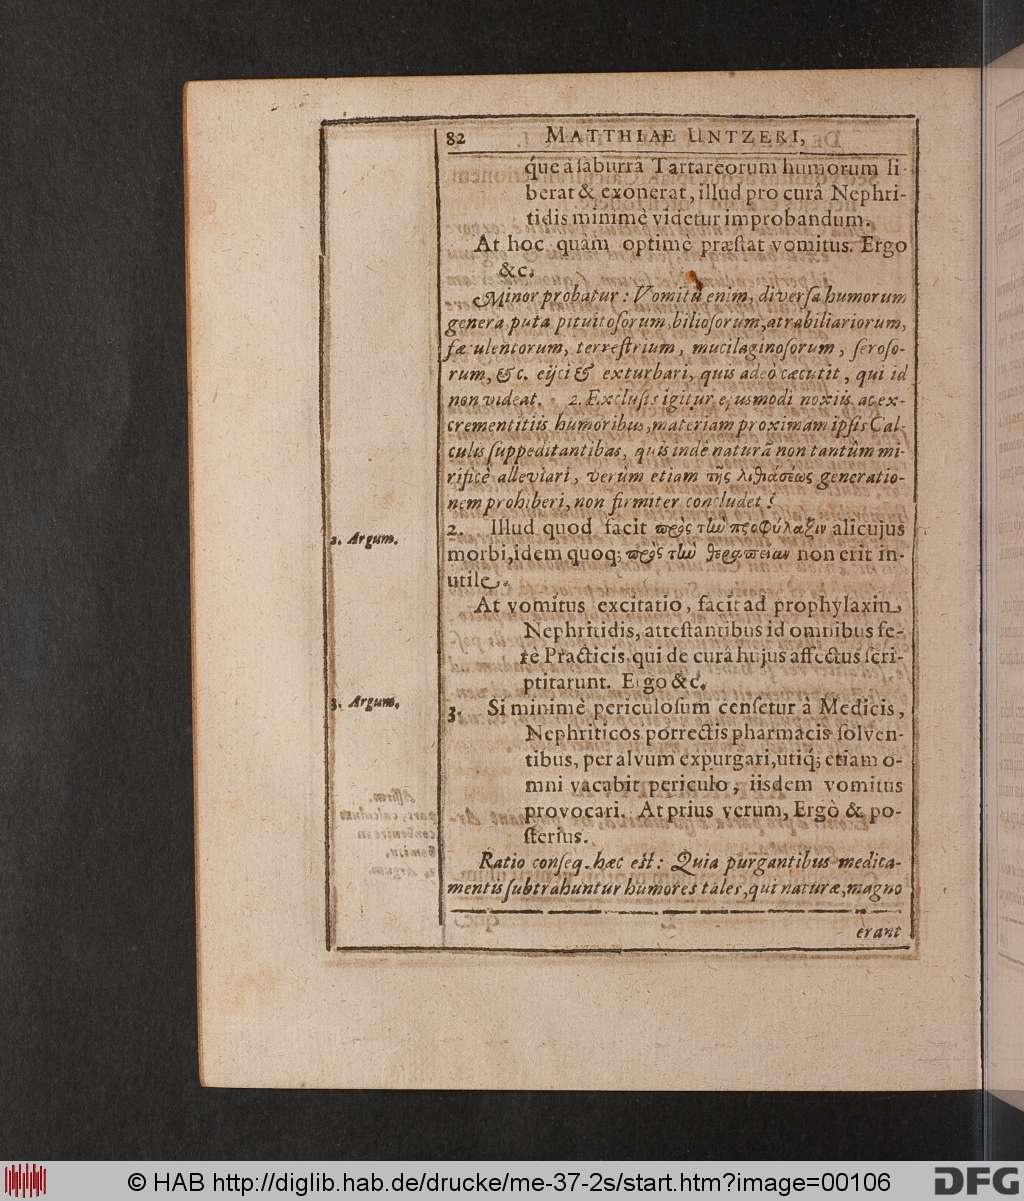 82 MATTHIAE UNTZERI,
q́ue à saburrâ Tartareorum humorum li-
berat & exonerat, illud pro curâ Nephri-
tidis minimè videtur improbandum.
At hoc quàm optimè præstat vomitus. Ergo
&c.
Minor probatur: Vomitu enim, diversa humorum
genera puta pituitosorum, biliosorum, atrabiliariorum,
fæculentorum, terrestrium, mucilaginosorum, seroso-
rum, &c. eijci & exturbari, quis adeò cæcutit, qui id
non videat. 2. Exclusis igitur ejusmodi noxiis ac ex-
crementitiis humoribus, materiam proximam ipsis Cal-
culis suppeditantibas, quis indè naturā non tantùm mi-
rificè alleviari, verùm etiam τῆς λιθιάσέως generatio-
nem prohiberi, non firmiter concludet?
2. Argum.
2. Illud quod facit πρὸς τἰω προφύλαξιν alicujus
morbi, idem quoq; πρὸς τἰω θεραπείαν non erit in-
utile.
At vomitus excitatio, facit ad prophylaxin
Nephritidis, attestantibus id omnibus fe-
rè Practicis qui de curâ hujus affectus scri-
ptitarunt. Ergo &c.
3. Argum.
3. Si minimè periculosum censetur à Medicis,
Nephriticos porrectis pharmacis solven-
tibus, per alvum expurgari, utiq́; etiam o-
mni vacabit periculo, iisdem vomitus
provocari. At prius verum, Ergò & po-
sterius.
Ratio conseq. hæc est: Quia purgantibus medica-
mentis subtrahuntur humores tales, qui naturæ, magno
erant
© HAB http://diglib.hab.de/drucke/me-37-2s/start.htm?image=00106
DFG